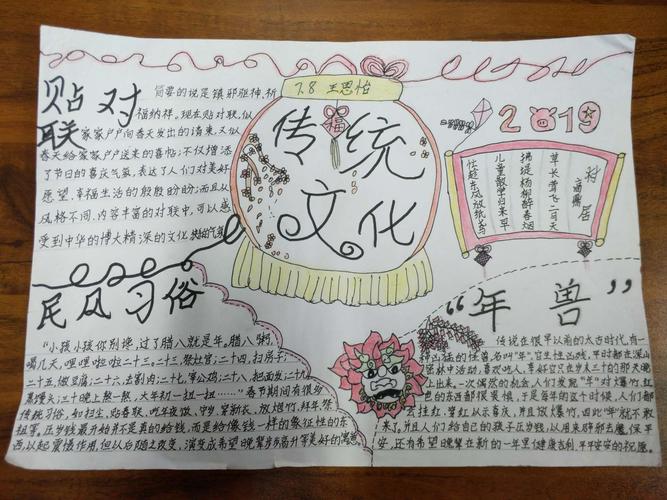 贴对联
简要的说是镇邪驱神、祈
福纳祥。现在贴对联,似
家家户户向春天发出的请柬,又似
春天给家家户户送来的喜帖;不仅增添
了节日的喜庆气氛,表达了人们对美好
愿望、幸福生活的殷殷盼盼;而且从
风格不同、内容丰富的对联中,可以感
受到中华的博大精深的文化
7.8 王思怡
福
传统
文化
2019
村居
高鼎
草长莺飞二月天
拂堤杨柳醉春烟
儿童散学归来早
忙趁东风放纸鸢
民风习俗
“小孩小孩你别馋,过了腊八就是年。腊八粥,
喝几天,哩哩啦啦二十三。二十三,祭灶官;二十四,扫房子;
二十五,做豆腐;二十六,去割肉;二十七,宰公鸡;二十八,把面发;二十九,
蒸馒头;三十晚上熬一熬,大年初一扭一扭……”春节期间有很多
传统习俗,如扫尘,贴春联,吃年夜饭,守岁,穿新衣,放烟竹,拜年祭
祖等。压岁钱最开始并不是真的给钱,而是给像钱一样的象征性的东
西,以起震慑作用,但以后随之改变,演变成希望晚辈岁岁高升等美好的寓意
“年兽”
传说在很早以前的太古时代,有一
种凶猛的怪兽名叫“年”,它生性凶残,平时都在深山
密林中活动,喜欢吃人,幸好它在岁末三十的那天晚
上出来。一次偶然的机会,人们发现“年”对大爆竹,红
色的东西都很畏惧,于是每年的这个时候,人们都
去挂红,穿红以示喜庆,并且放爆竹,因此“年”就不敢
来了。并且人们给自己的孩子压岁钱,以用来辟邪去魔,保平
安,还有希望晚辈在新的一年里健康吉利,平平安安的祝愿。